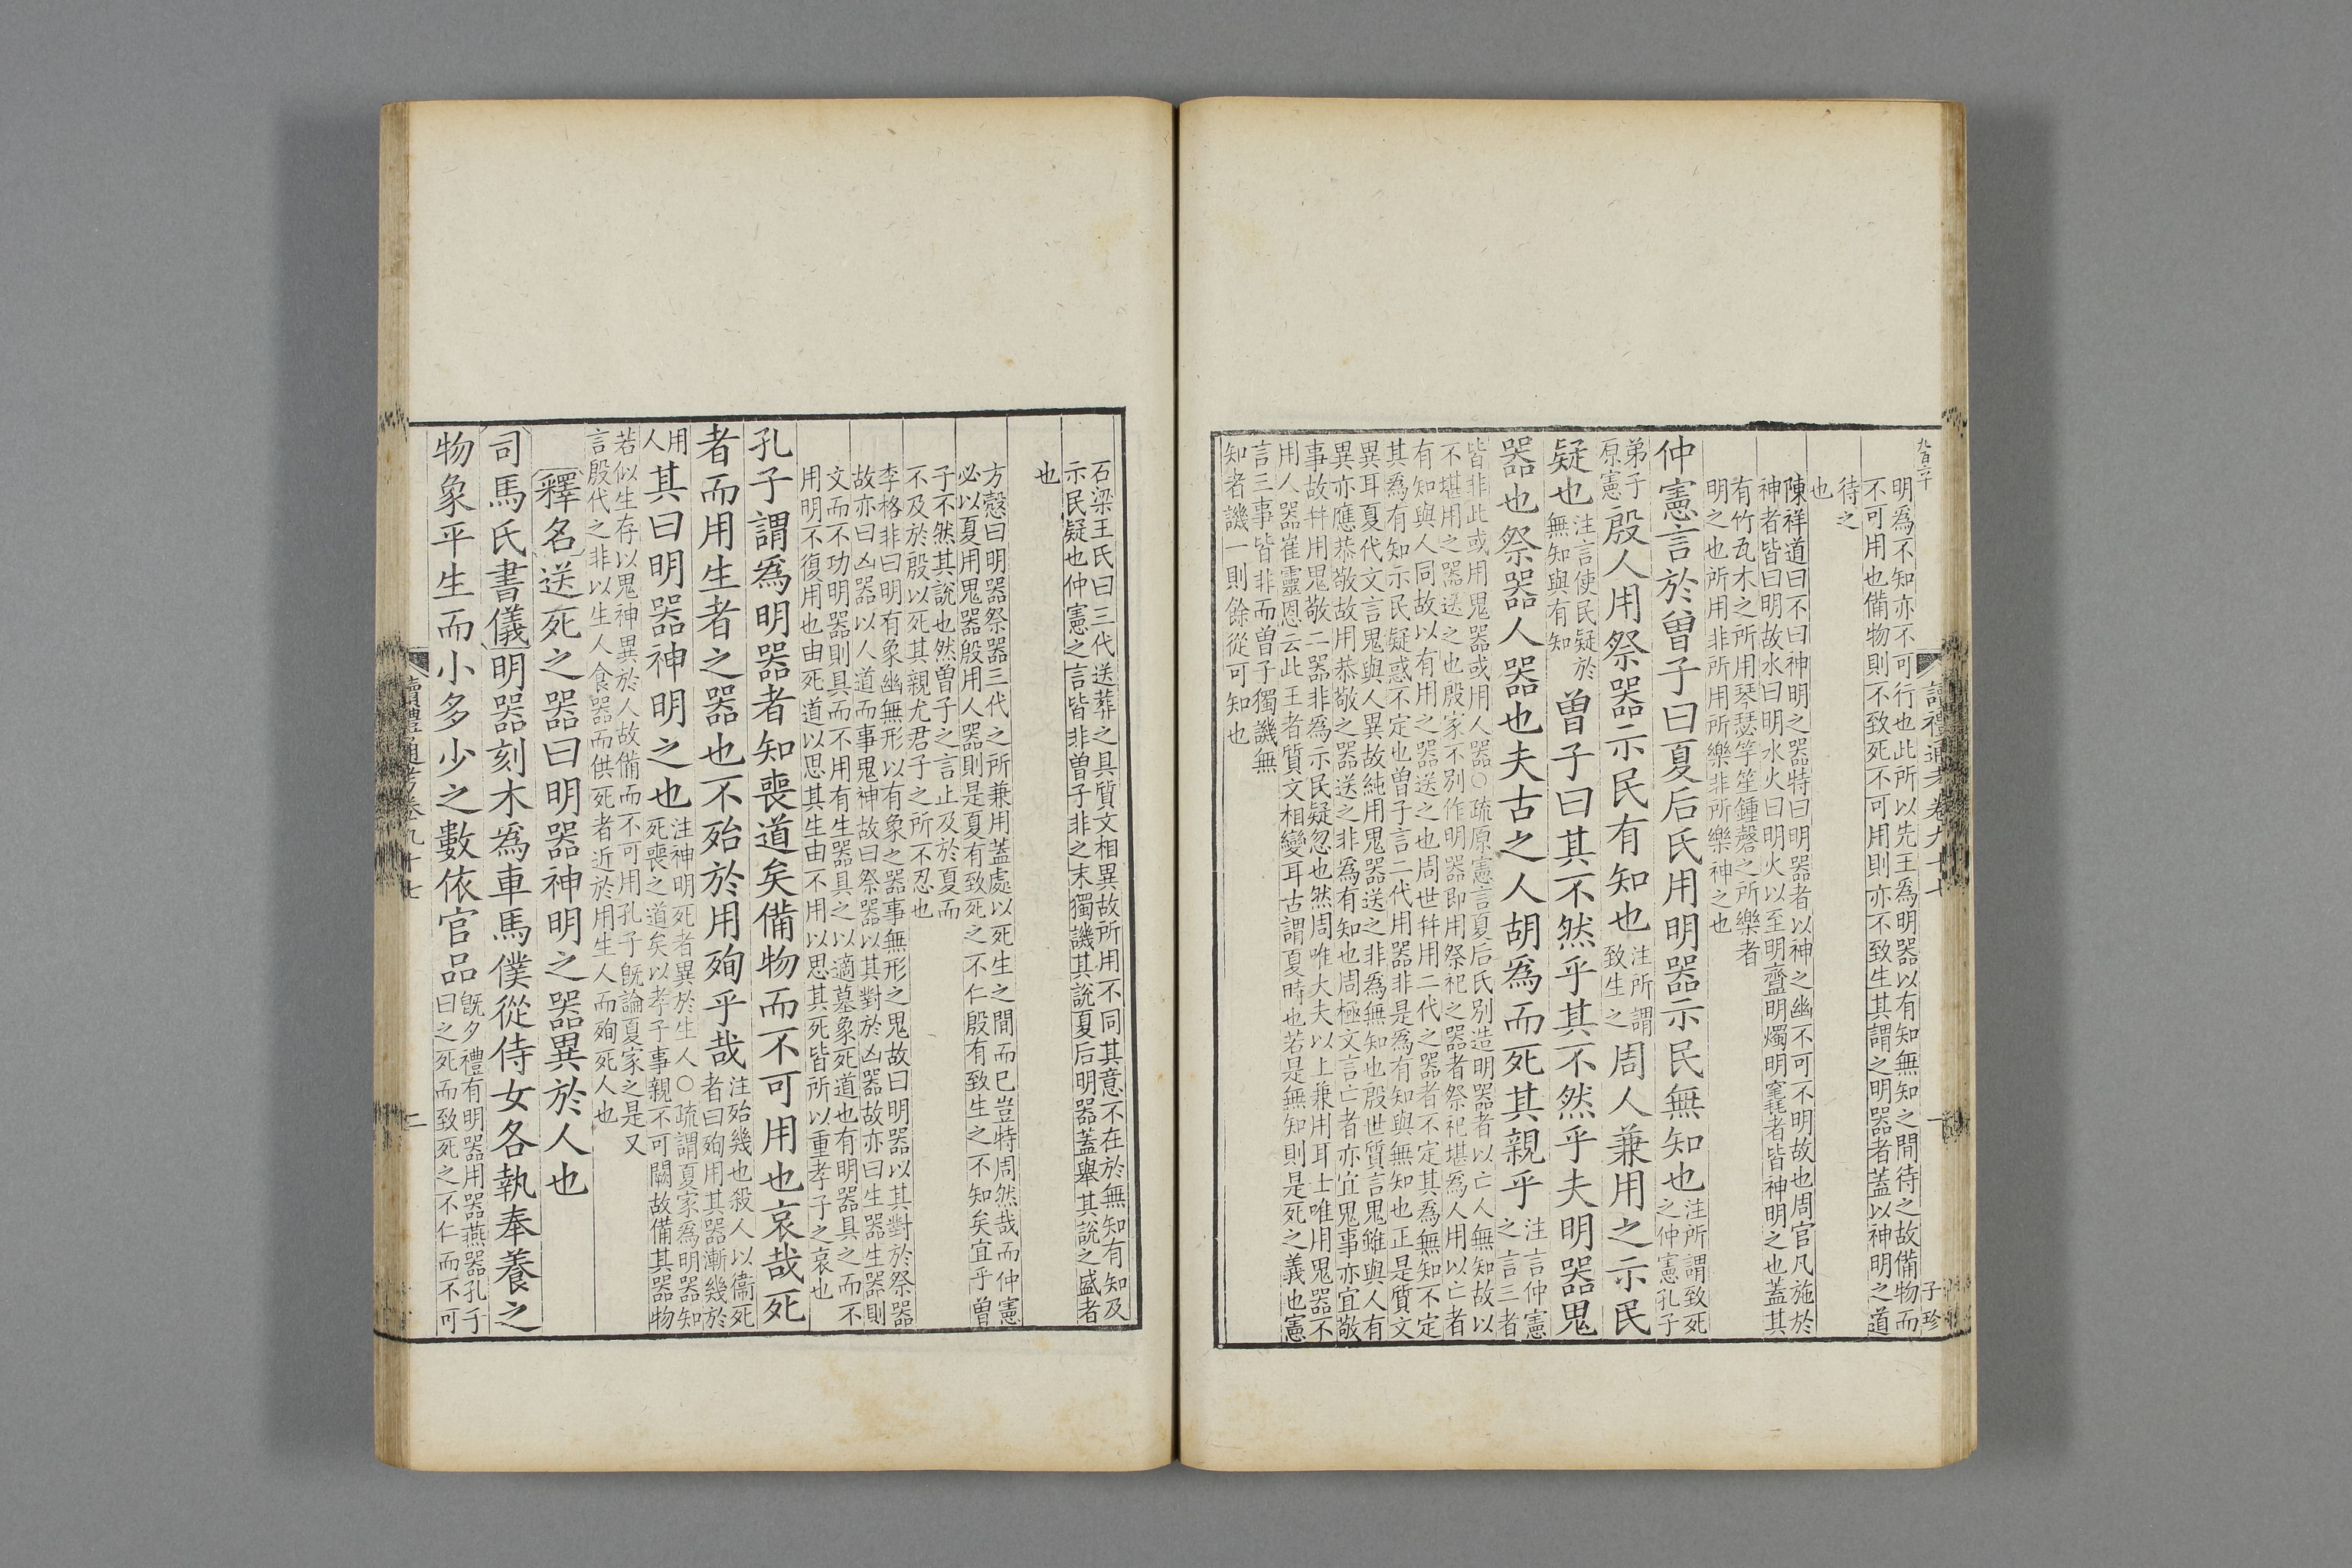 九百六十
明為不知亦不可行也此所以先王為明器以有知無知之間待之故備物而
不可用也備物則不致死不可用則亦不致生其謂之明器者蓋以神明之道
待之
也
陳祥道曰不曰神明之器特曰明器者以神之幽不可不明故也周官凡施於
神者皆曰明故水曰明水火曰明火以至明齍明燭明竁者皆神明之也蓋其
有竹瓦木之所用琴瑟竽笙鍾磬之所樂者
明之也所用非所用所樂非所樂神之也
仲憲言於曾子曰夏后氏用明器示民無知也注所謂致死之仲憲孔子
弟子原憲殷人用祭器示民有知也注所謂致生之周人兼用之示民
疑也注言使民疑於無知與有知曾子曰其不然乎其不然乎夫明器鬼
器也祭器人器也夫古之人胡為而死其親乎注言仲憲之言三者
皆非此或用鬼器或用人器○疏原憲言夏后氏別造明器者以亡人無知故以
不堪用之器送之也殷家不別作明器即用祭祀之器者祭祀堪為人用以亡者
有知與人同故以有用之器送之也周世幷用二代之器者不定其為無知不定
其為有知示民疑惑不定也曾子言二代用器非是為有知與無知也正是質文
異耳夏代文言鬼與人異故純用鬼器送之非為無知也殷世質言鬼雖與人有
異亦應恭敬故用恭敬之器送之非為有知也周極文言亡者亦宜鬼事亦宜敬
事故幷用鬼敬二器非為示民疑忽也然周唯大夫以上兼用耳士唯用鬼器不
用人器崔靈恩云此王者質文相變耳古謂夏時也若是無知則是死之義也憲
言三事皆非而曾子獨譏無
知者譏一則餘從可知也
讀禮通考卷九十七
一
子珍
石梁王氏曰三代送葬之具質文相異故所用不同其意不在於無知有知及
示民疑也仲憲之言皆非曾子非之末獨譏其說夏后明器蓋舉其說之盛者
也
方慤曰明器祭器三代之所兼用蓋處以死生之間而已豈特周然哉而仲憲
必以夏用鬼器殷用人器則是夏有致死之不仁殷有致生之不知矣宜乎曾
子不然其說也然曾子之言止及於夏而
不及於殷以死其親尤君子之所不忍也
李格非曰明有象幽無形以有象之器事無形之鬼故曰明器以其對於祭器
故亦曰凶器以人道而事鬼神故曰祭器以其對於凶器故亦曰生器生器則
文而不功明器則具而不用有生器具之以適墓象死道也有明器具之而不
用明不復用也由死道以思其生由不用以思其死皆所以重孝子之哀也
孔子謂為明器者知喪道矣備物而不可用也哀哉死
者而用生者之器也不殆於用殉乎哉注殆幾也殺人以衞死者曰殉用其器漸幾於
用人其曰明器神明之也注神明死者異於生人○疏謂夏家為明器知死喪之道矣以孝子事親不可闕故備其器物
若似生存以鬼神異於人故備而不可用孔子旣論夏家之是又
言殷代之非以生人食器而供死者近於用生人而殉死人也
釋名送死之器曰明器神明之器異於人也
司馬氏書儀明器刻木為車馬僕從侍女各執奉養之
物象平生而小多少之數依官品旣夕禮有明器用器燕器孔子曰之死而致死之不仁而不可
讀禮通考卷九十七
二